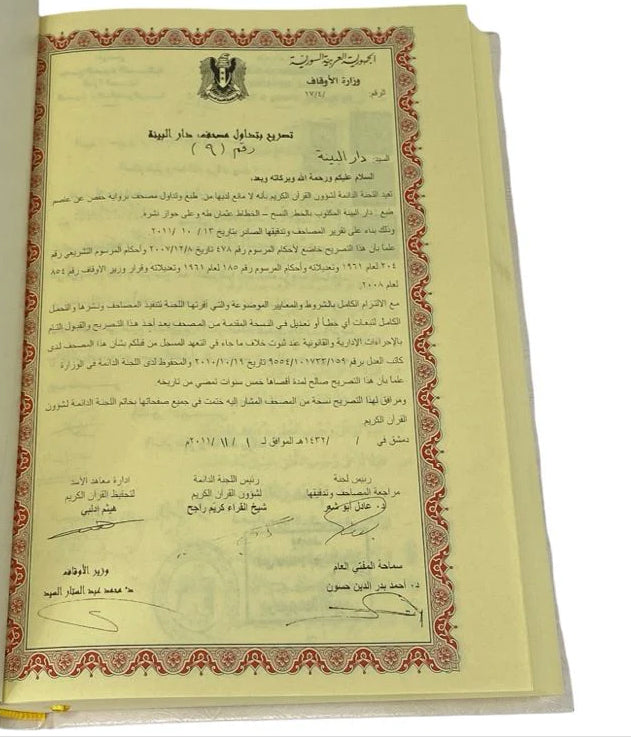 الجمهورية العربية السورية
وزارة الأوقاف
الرقم: ١٧/٤/
تصريح بتداول مصحف دار البينة
رقم ( ٩ )
السيد: دار البينة
السلام عليكم ورحمة الله وبركاته وبعد،
تفيد اللجنة الدائمة لشؤون القرآن الكريم بأنه لا مانع لديها من طبع وتداول مصحف برواية حفص عن عاصم
طبع . دار البينة المكتوب بالخط النسخ – الخطاط عثمان طه وعلى جواز نشره.
وذلك بناء على تقرير المصاحف وتدقيقها الصادر بتاريخ ١٣ / ١٠ / ٢٠١١.
علما بأن هذا التصريح خاضع لأحكام المرسوم رقم ٤٧٨ تاريخ ٢٠٠٧/١٢/٨ وأحكام المرسوم التشريعي رقم
٣٠٤ لعام ١٩٦١ وتعديلاته وأحكام المرسوم رقم ١٨٥ لعام ١٩٦١ وتعديلاته وقرار وزير الأوقاف رقم ٨٥٤
لعام ٢٠٠٨.
مع الالتزام الكامل بالشروط والمعايير الموضوعة والتي أقرتها اللجنة لتنفيذ المصاحف ونشرها والتحمل
الكامل لتبعات أي خطأ أو تعديل في النسخة المقدمة من المصحف بعد أخذ هذا التصريح والقبول التام
بالإجراءات الإدارية والقانونية عند ثبوت خلاف ما جاء في التعهد المسجل من قبلكم بشأن هذا المصحف لدى
كاتب العدل برقم ٩٥٥٤/١٠١٧٣٣/١٥٩ تاريخ ٢٠١٠/١٠/١٩ والمحفوظ لدى اللجنة الدائمة في الوزارة
علما بأن هذا التصريح صالح لمدة أقصاها خمس سنوات تمضي من تاريخه.
ومرافق لهذا التصريح نسخة من المصحف المشار إليه ختمت في جميع صفحاتها بخاتم اللجنة الدائمة لشؤون
القرآن الكريم.
دمشق في / /١٤٣٢هـ الموافق لـ ١ /١١ /٢٠١١م
رئيس لجنة
مراجعة المصاحف وتدقيقها
د. عادل أبو شعر
رئيس اللجنة الدائمة
لشؤون القرآن الكريم
شيخ القراء كريم راجح
إدارة معاهد الأسد
لتحفيظ القرآن الكريم
هيثم إدلبي
سماحة المفتي العام
د. أحمد بدر الدين حسون
وزير الأوقاف
د. محمد عبد الستار السيد